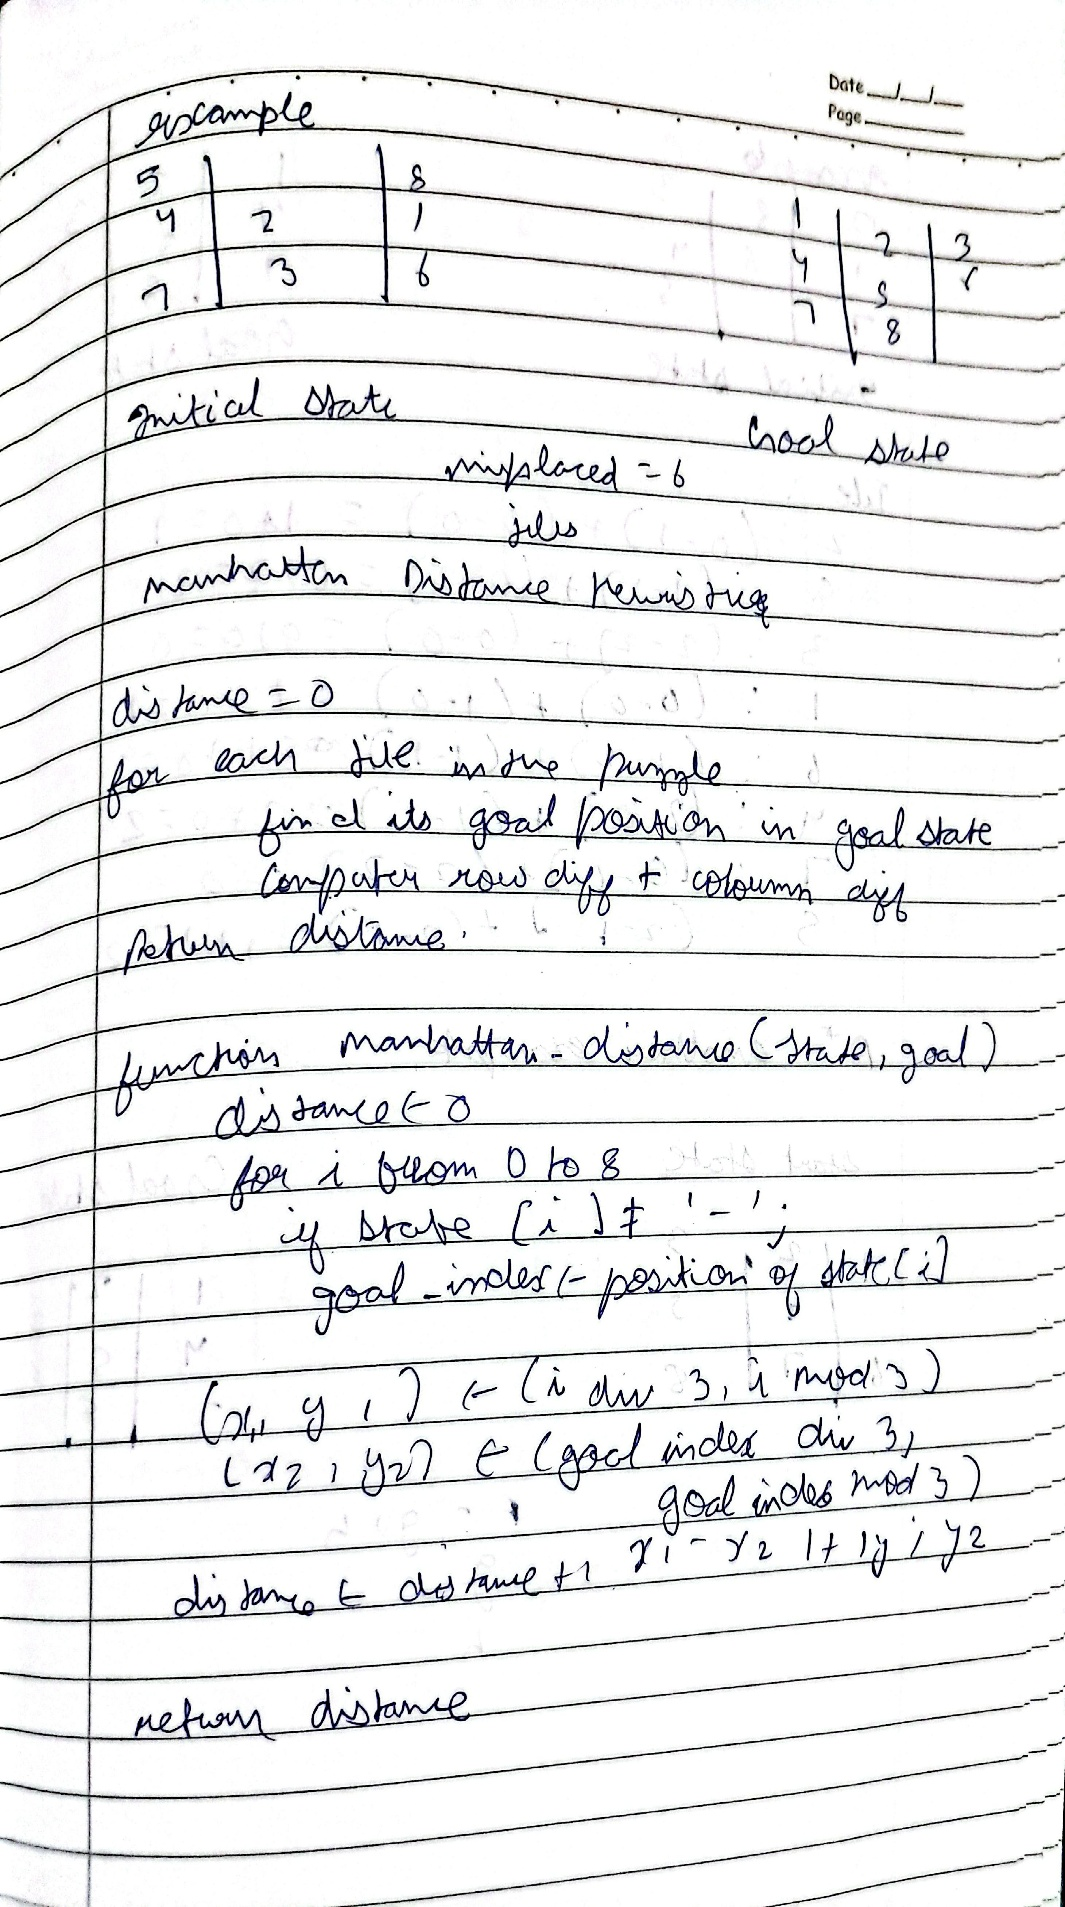 Date __/__/__
Page
example
5 | | 8
4 | 2 | 1
7 | 3 | 6
1 | 2 | 3
4 | 5 |
7 | 8 |
Initial state
Goal state
misplaced = 6
tiles
manhattan Distance Heuristic
distance = 0
for each tile in the puzzle
find its goal position in goal state
Computer row diff + coloumn diff
Return distance.
function manhattan - distance (state, goal)
distance ← 0
for i from 0 to 8
if state [i] ≠ '-';
goal - index ← position of state [i]
(x1, y1) ← (i div 3, i mod 3)
(x2, y2) ← (goal index div 3,
goal index mod 3)
distance ← distance + | x1 - x2 | + | y1 y2
return distance